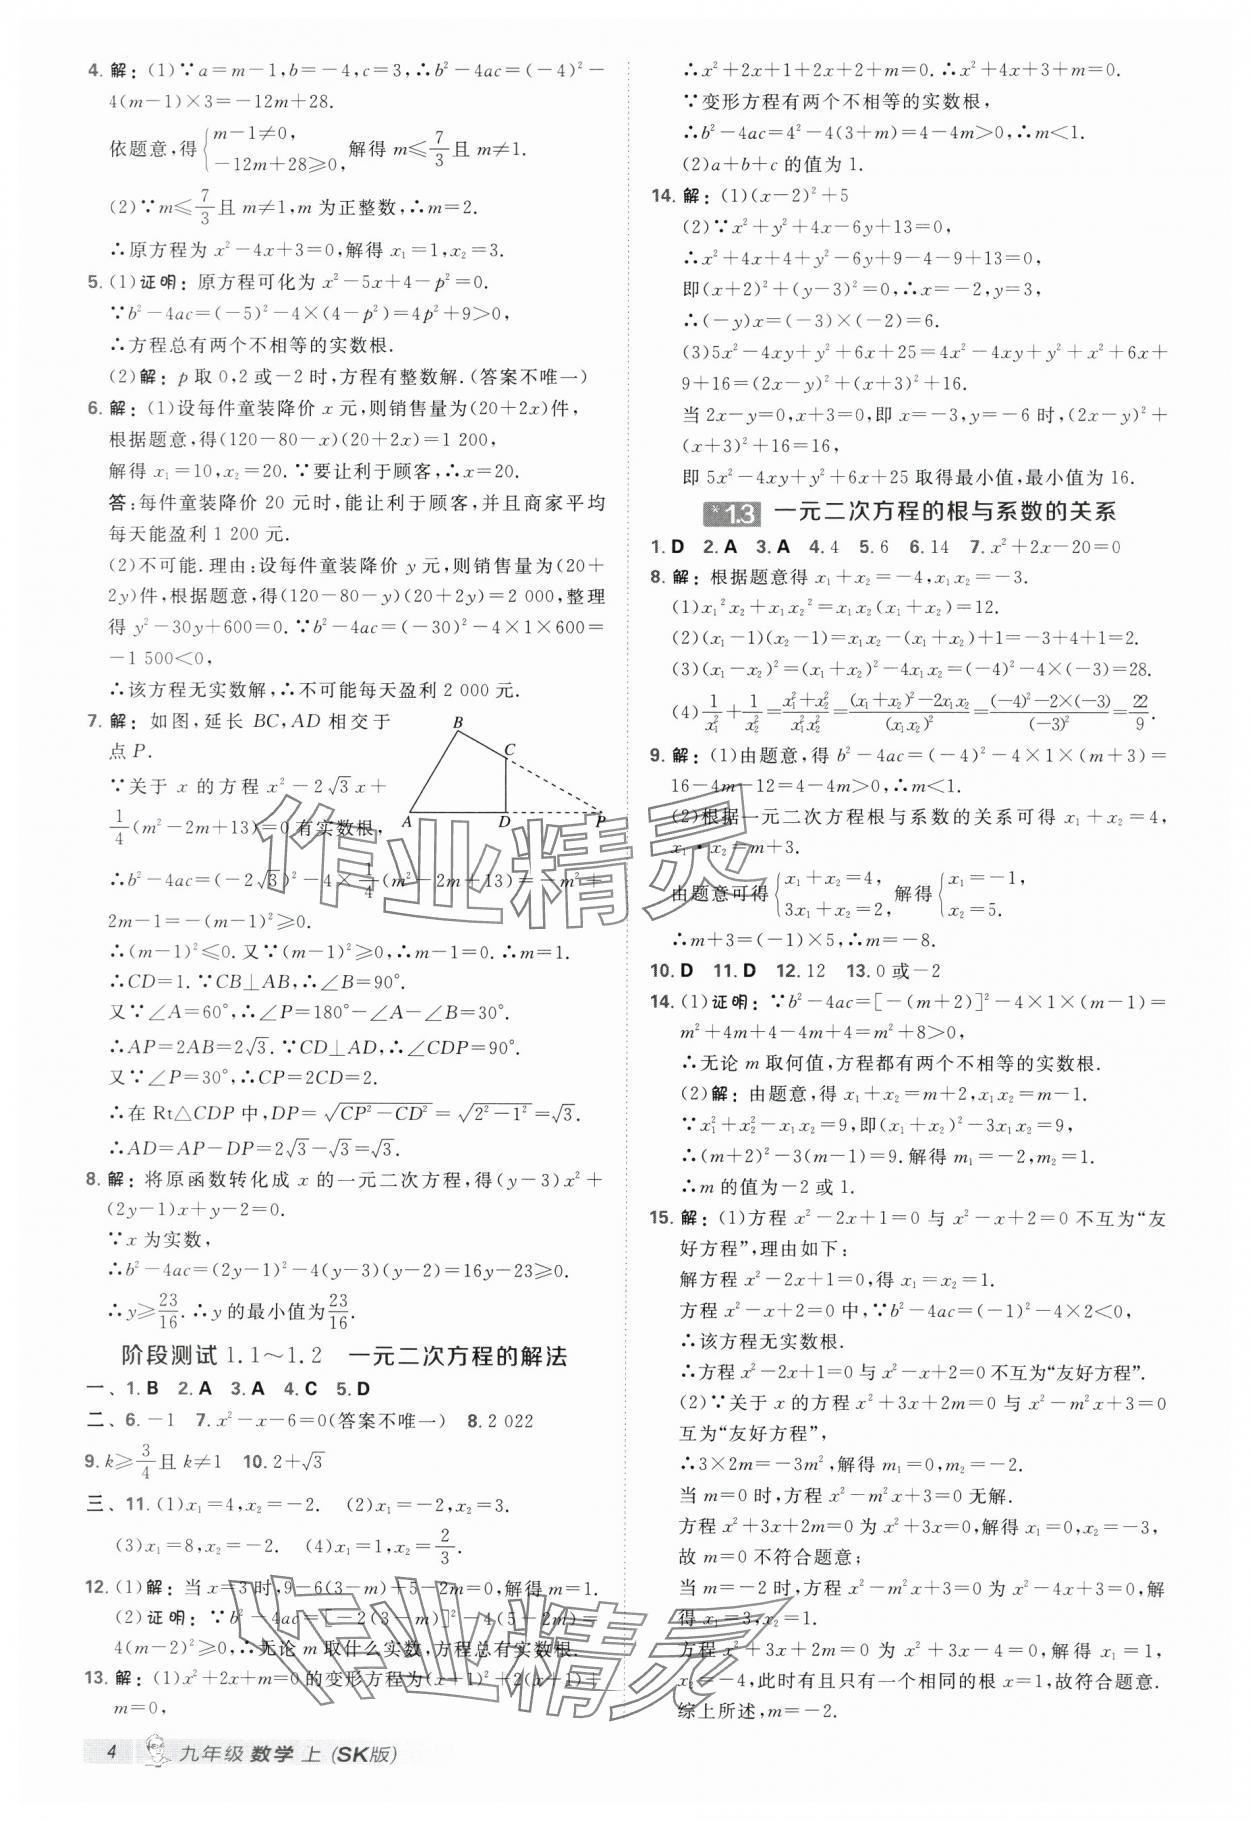 4. 解：(1)∵a=m-1,b=-4,c=3,∴b²-4ac=(-4)²-
4(m-1)×3=-12m+28.
依题意,得{m-1≠0, -12m+28≥0, 解得 m≤7/3且 m≠1.
(2)∵m≤7/3且 m≠1,m 为正整数,∴m=2.
∴原方程为 x²-4x+3=0,解得 x₁=1,x₂=3.
5. (1)证明：原方程可化为 x²-5x+4-p²=0.
∵b²-4ac=(-5)²-4×(4-p²)=4p²+9>0,
∴方程总有两个不相等的实数根.
(2)解：p 取 0,2 或-2 时,方程有整数解.(答案不唯一)
6. 解：(1)设每件童装降价 x 元,则销售量为(20+2x)件,
根据题意,得(120-80-x)(20+2x)=1 200,
解得 x₁=10,x₂=20.∵要让利于顾客,∴x=20.
答:每件童装降价 20 元时,能让利于顾客,并且商家平均
每天能盈利 1 200 元.
(2)不可能.理由:设每件童装降价 y 元,则销售量为(20+
2y)件,根据题意,得(120-80-y)(20+2y)=2 000,整理
得 y²-30y+600=0.∵b²-4ac=(-30)²-4×1×600=
-1 500<0,
∴该方程无实数解,∴不可能每天盈利 2 000 元.
7. 解：如图,延长 BC,AD 相交于
点 P.
∵关于 x 的方程 x²-2√3x+
1/4(m²-2m+13)=0 有实数根,
B
C
A
D
P
∴b²-4ac=(-2√3)²-4×1/4(m²-2m+13)=-m²+
2m-1=-(m-1)²≥0.
∴(m-1)²≤0.又∵(m-1)²≥0,∴m-1=0.∴m=1.
∴CD=1.∵CB⊥AB,∴∠B=90°.
又∵∠A=60°,∴∠P=180°-∠A-∠B=30°.
∴AP=2AB=2√3.∵CD⊥AD,∴∠CDP=90°.
又∵∠P=30°,∴CP=2CD=2.
∴在 Rt△CDP 中,DP=√(CP²-CD²)=√(2²-1²)=√3.
∴AD=AP-DP=2√3-√3=√3.
8. 解：将原函数转化成 x 的一元二次方程,得(y-3)x²+
(2y-1)x+y-2=0.
∵x 为实数,
∴b²-4ac=(2y-1)²-4(y-3)(y-2)=16y-23≥0.
∴y≥23/16.∴y 的最小值为23/16.
阶段测试 1.1～1.2 一元二次方程的解法
一、1. B 2. A 3. A 4. C 5. D
二、6. -1 7. x²-x-6=0(答案不唯一) 8. 2 022
9. k≥3/4且 k≠1 10. 2+√3
三、11. (1)x₁=4,x₂=-2. (2)x₁=-2,x₂=3.
(3)x₁=8,x₂=-2. (4)x₁=1,x₂=2/3.
12. (1)解：当 x=3 时,9-6(3-m)+5-2m=0,解得 m=1.
(2)证明：∵b²-4ac=[-2(3-m)]²-4(5-2m)=
4(m-2)²≥0,∴无论 m 取什么实数,方程总有实数根.
13. 解：(1)x²+2x+m=0 的变形方程为(x+1)²+2(x+1)+
m=0,
∴x²+2x+1+2x+2+m=0.∴x²+4x+3+m=0.
∵变形方程有两个不相等的实数根,
∴b²-4ac=4²-4(3+m)=4-4m>0,∴m<1.
(2)a+b+c 的值为 1.
14. 解：(1)(x-2)²+5
(2)∵x²+y²+4x-6y+13=0,
∴x²+4x+4+y²-6y+9-4-9+13=0,
即(x+2)²+(y-3)²=0,∴x=-2,y=3,
∴(-y)x=(-3)×(-2)=6.
(3)5x²-4xy+y²+6x+25=4x²-4xy+y²+x²+6x+
9+16=(2x-y)²+(x+3)²+16.
当 2x-y=0,x+3=0,即 x=-3,y=-6 时,(2x-y)²+
(x+3)²+16=16,
即 5x²-4xy+y²+6x+25 取得最小值,最小值为 16.
*1.3 一元二次方程的根与系数的关系
1. D 2. A 3. A 4. 4 5. 6 6. 14 7. x²+2x-20=0
8. 解：根据题意得 x₁+x₂=-4,x₁x₂=-3.
(1)x₁²x₂+x₁x₂²=x₁x₂(x₁+x₂)=12.
(2)(x₁-1)(x₂-1)=x₁x₂-(x₁+x₂)+1=-3+4+1=2.
(3)(x₁-x₂)²=(x₁+x₂)²-4x₁x₂=(-4)²-4×(-3)=28.
(4)1/x₁²+1/x₂²=(x₁²+x₂²)/(x₁²x₂²)=((x₁+x₂)²-2x₁x₂)/(x₁x₂)²=((-4)²-2×(-3))/(-3)²=22/9.
9. 解：(1)由题意,得 b²-4ac=(-4)²-4×1×(m+3)=
16-4m-12=4-4m>0,∴m<1.
(2)根据一元二次方程根与系数的关系可得 x₁+x₂=4,
x₁·x₂=m+3.
由题意可得{x₁+x₂=4, 3x₁+x₂=2, 解得{x₁=-1, x₂=5.
∴m+3=(-1)×5,∴m=-8.
10. D 11. D 12. 12 13. 0 或-2
14. (1)证明：∵b²-4ac=[-(m+2)]²-4×1×(m-1)=
m²+4m+4-4m+4=m²+8>0,
∴无论 m 取何值,方程都有两个不相等的实数根.
(2)解：由题意,得 x₁+x₂=m+2,x₁x₂=m-1.
∵x₁²+x₂²-x₁x₂=9,即(x₁+x₂)²-3x₁x₂=9,
∴(m+2)²-3(m-1)=9.解得 m₁=-2,m₂=1.
∴m 的值为-2 或 1.
15. 解：(1)方程 x²-2x+1=0 与 x²-x+2=0 不互为“友
好方程”,理由如下:
解方程 x²-2x+1=0,得 x₁=x₂=1.
方程 x²-x+2=0 中,∵b²-4ac=(-1)²-4×2<0,
∴该方程无实数根.
∴方程 x²-2x+1=0 与 x²-x+2=0 不互为“友好方程”.
(2)∵关于 x 的方程 x²+3x+2m=0 与 x²-m²x+3=0
互为“友好方程”,
∴3×2m=-3m²,解得 m₁=0,m₂=-2.
当 m=0 时,方程 x²-m²x+3=0 无解.
方程 x²+3x+2m=0 为 x²+3x=0,解得 x₁=0,x₂=-3,
故 m=0 不符合题意;
当 m=-2 时,方程 x²-m²x+3=0 为 x²-4x+3=0,解
得 x₁=3,x₂=1.
方程 x²+3x+2m=0 为 x²+3x-4=0,解得 x₁=1,
x₂=-4,此时有且只有一个相同的根 x=1,故符合题意.
综上所述,m=-2.
作业精灵
作业精灵
4 九年级 数学 上 (SK版)